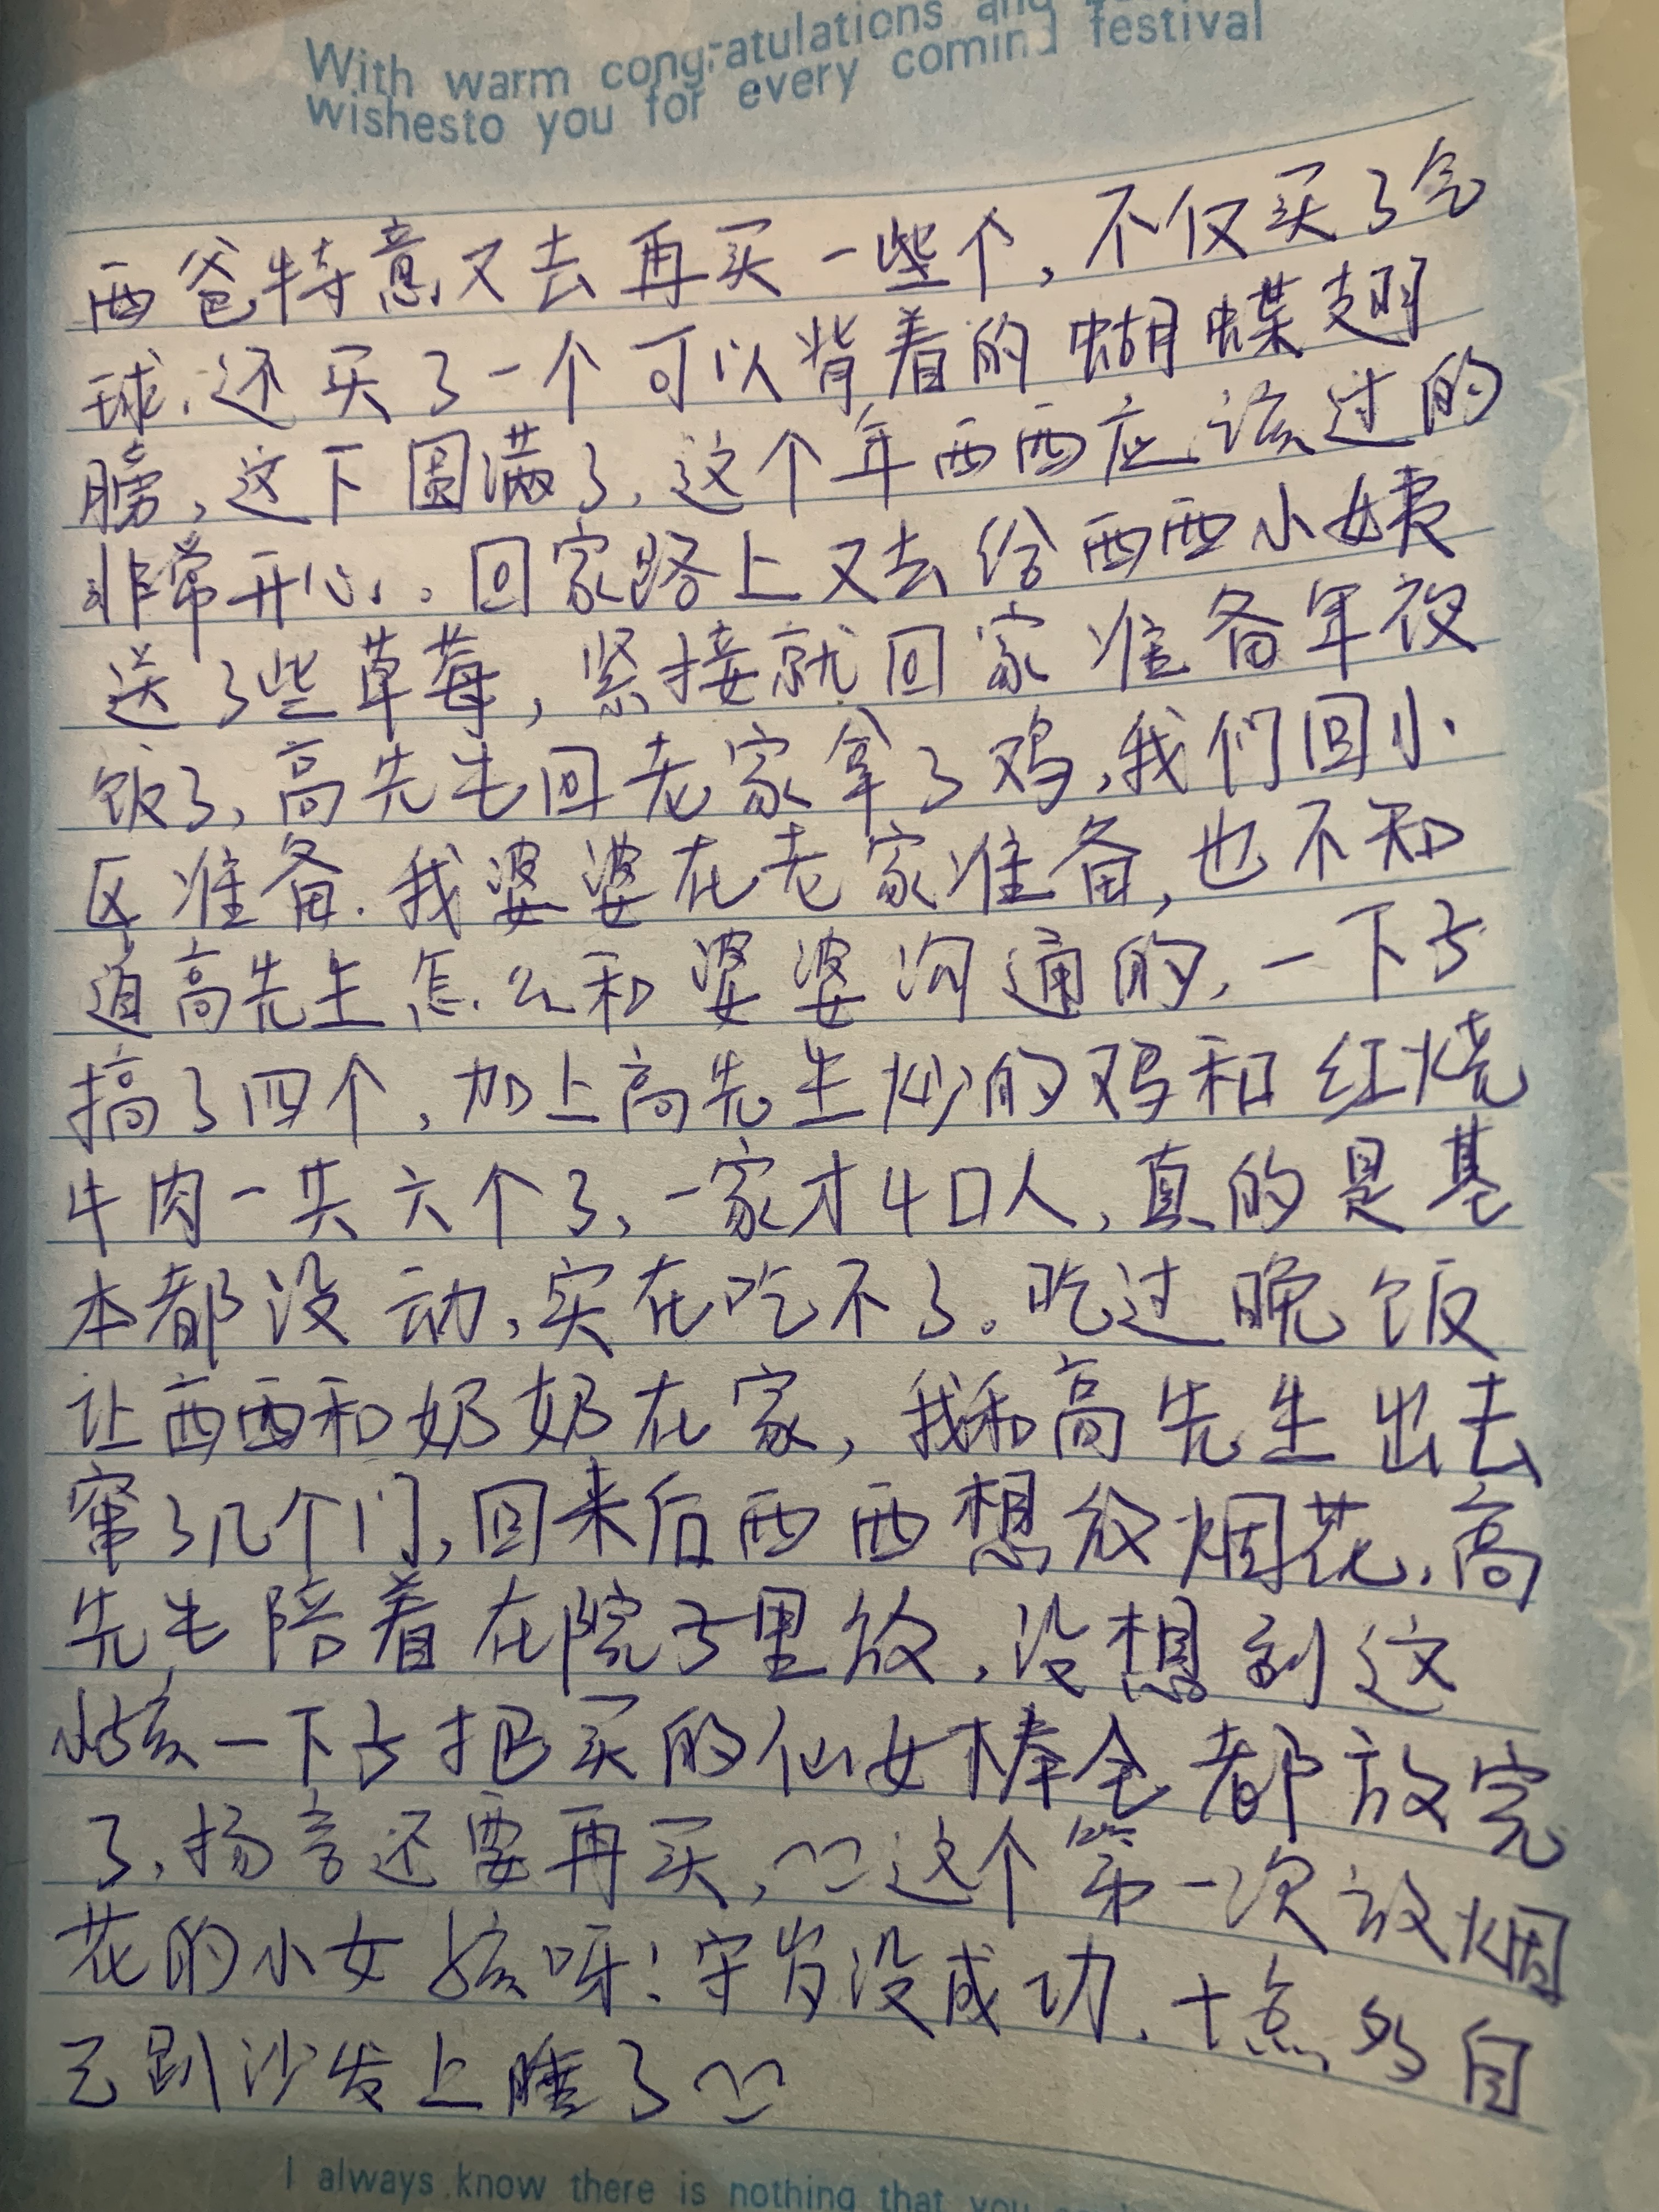 With warm congratulations and
wishesto you for every coming festival
西爸特意又去再买一些个,不仅买了气
球.还买了一个可以背着的蝴蝶翅
膀,这下圆满了,这个年西西应该过的
非常开心。回家路上又去给西西小姨
送了些草莓,紧接就回家准备年夜
饭了,高先生回老家拿了鸡,我们回小
区准备.我婆婆在老家准备,也不知
道高先生怎么和婆婆沟通的,一下子
搞了四个,加上高先生炒的鸡和红烧
牛肉一共六个了,一家才4口人,真的是基
本都没动,实在吃不了。吃过晚饭
让西西和奶奶在家,我和高先生出去
窜了几个门,回来后西西想放烟花,高
先生陪着在院子里放,没想到这
小孩一下子把买的仙女棒全都放完
了,扬言还要再买,这个第一次放烟
花的小女孩呀!守岁没成功.十点多自
己趴沙发上睡了
I always know there is nothing that you